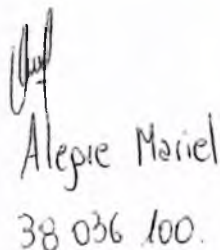 Alegre Mariel
38 036 100.